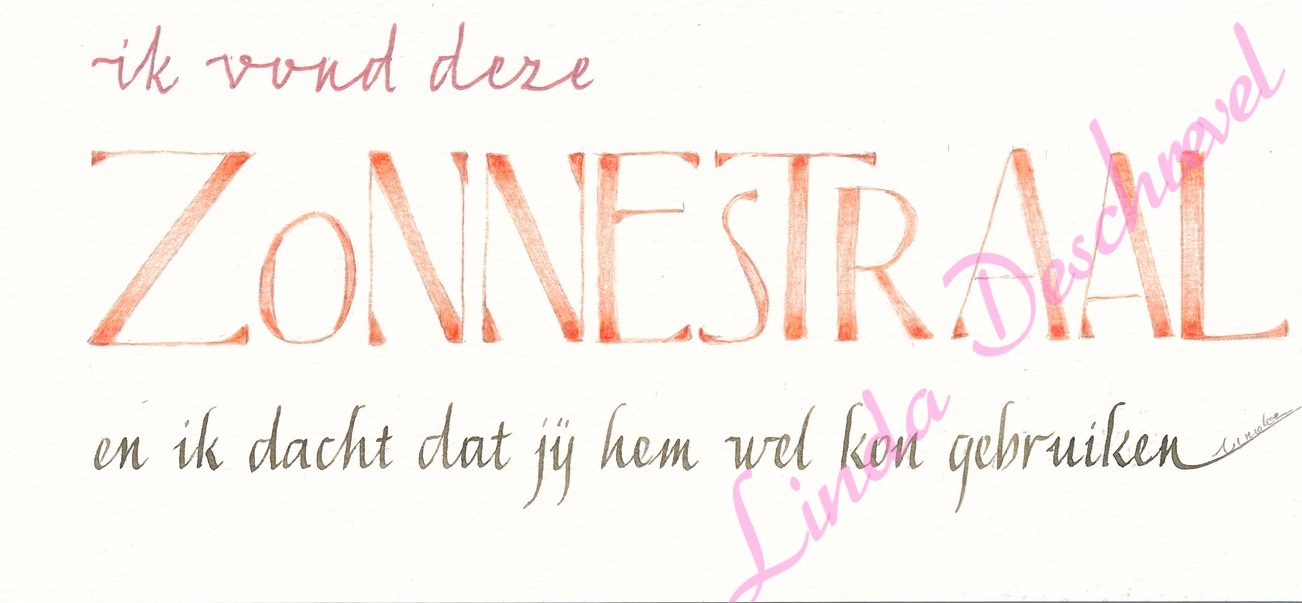 ik vond deze
ZoNNESTRAAL
en ik dacht dat jij hem wel kon gebruiken
Linda
Linda Deschrevel